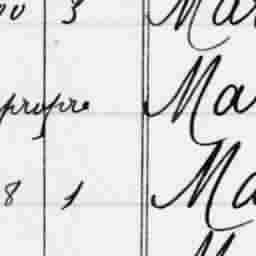 3 Mar
propre Ma
8 1 Ma